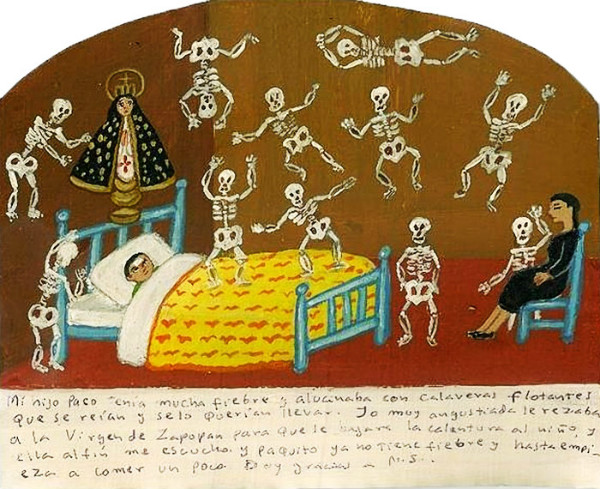 Mi hijo Paco tenia mucha fiebre y alucinaba con calaveras flotantes
que se reian y se lo querian llevar. Yo muy angustiada le rezaba
a la Virgen de Zapopan para que le bajara la calentura al niño, y
ella al fin me escucho y paquito ya no tiene fiebre y hasta empi-
eza a comer un poco Doy gracias a M.S.